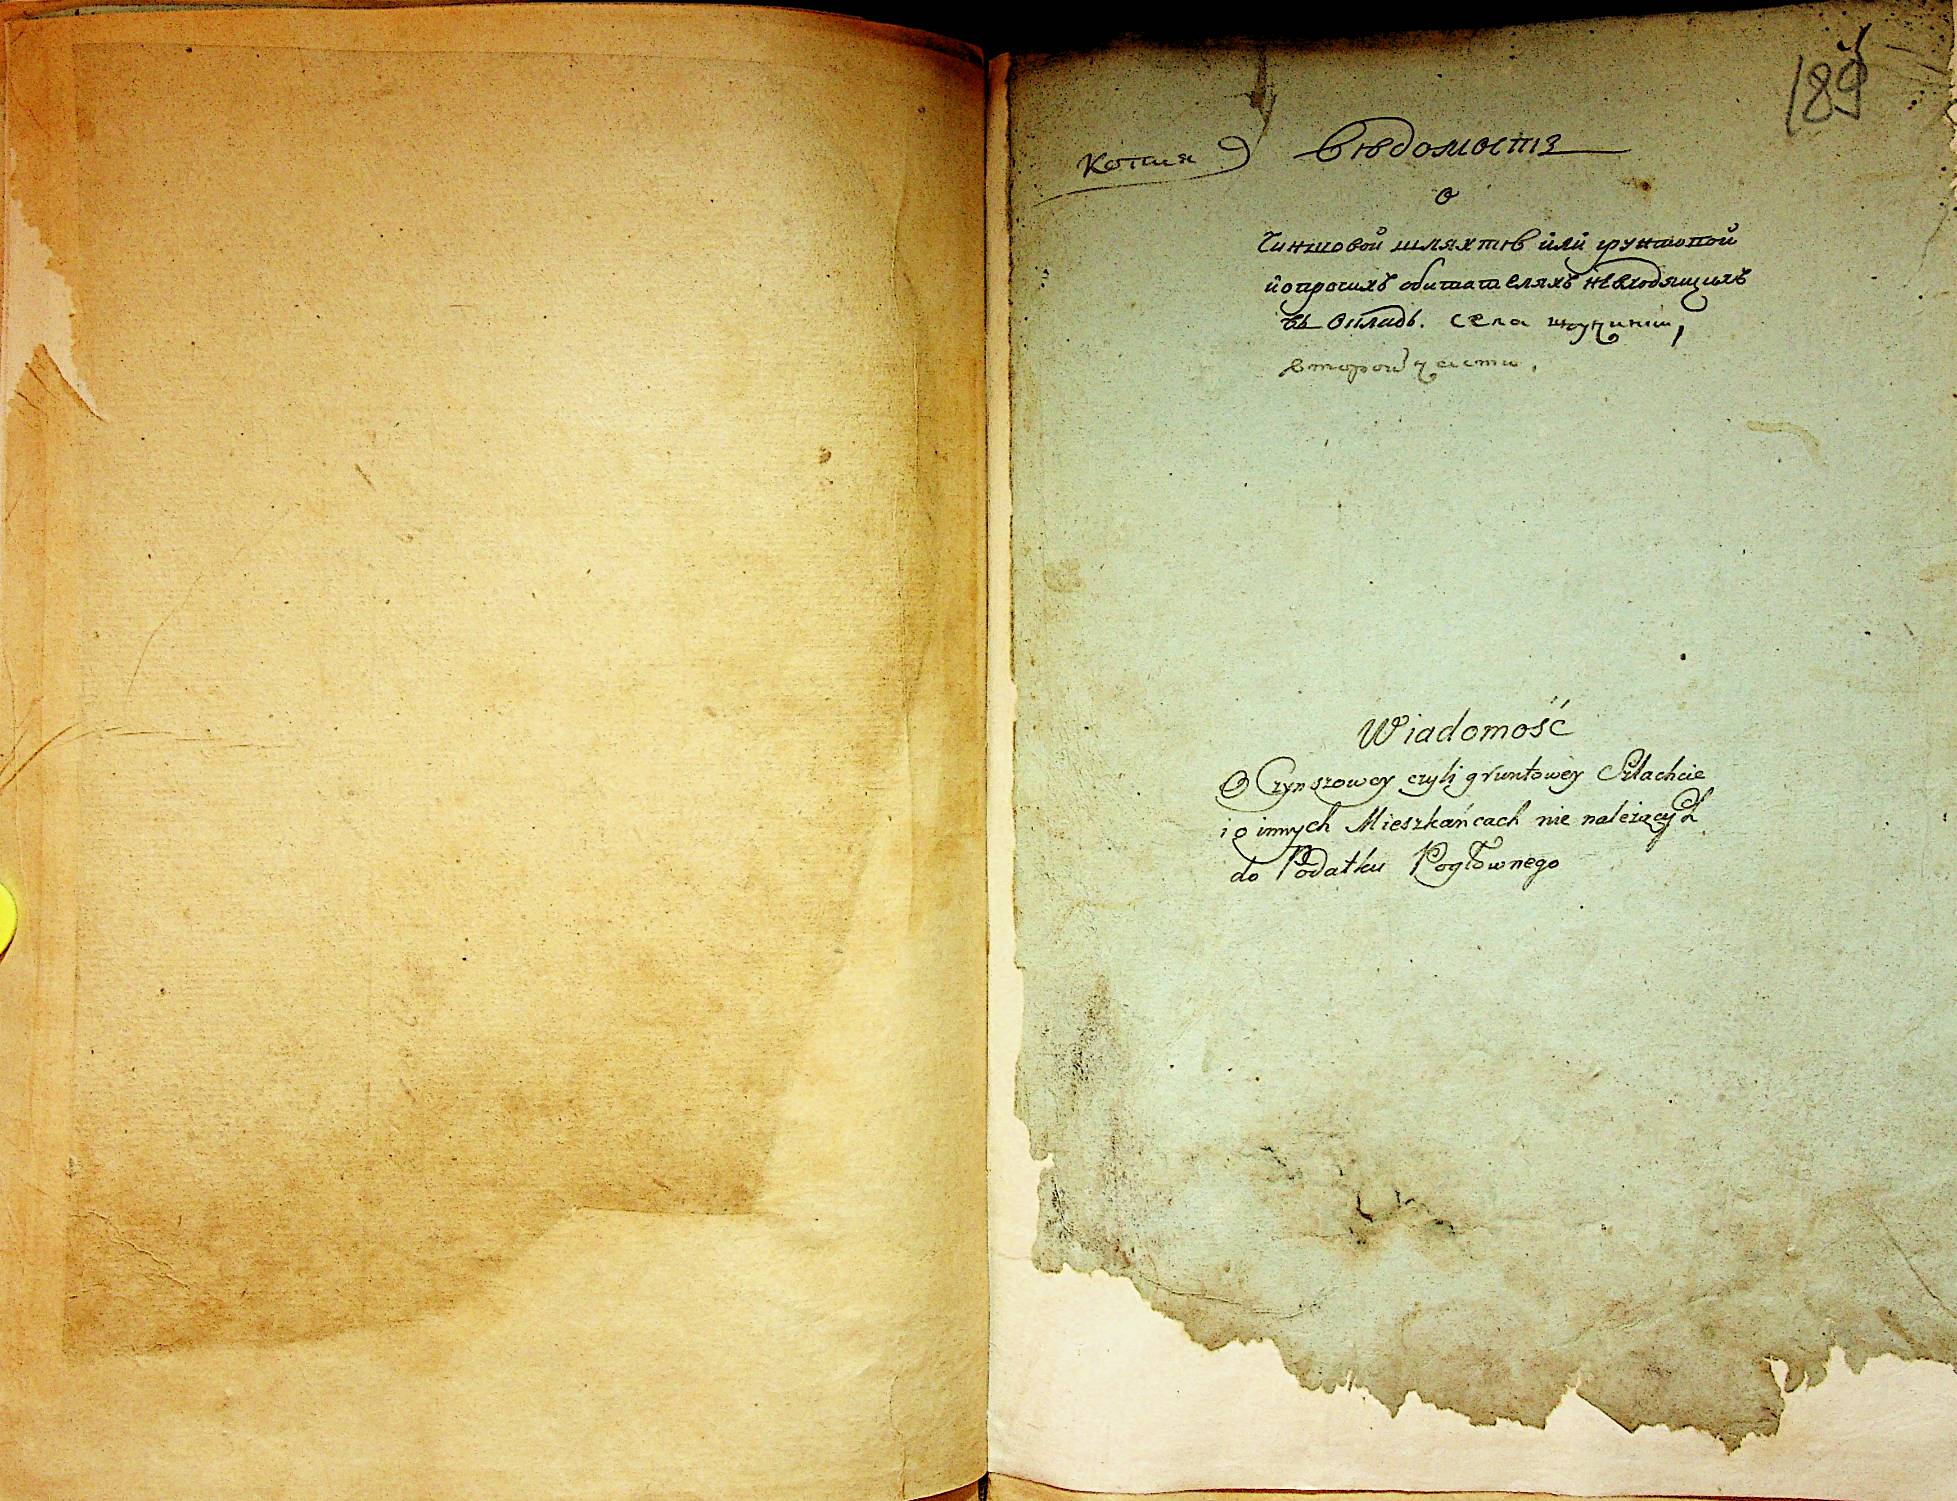 189
Копия Вѣдомость
о
Чиншовой шляхтѣ или грунтовой
и о протчихъ обитателяхъ невходящихъ
въ окладъ. села
второй части.
Wiadomość
O Czynszowey czyli gruntowey Szlachcie
i o innych Mieszkańcach nie należących
do Podatku Pogłównego